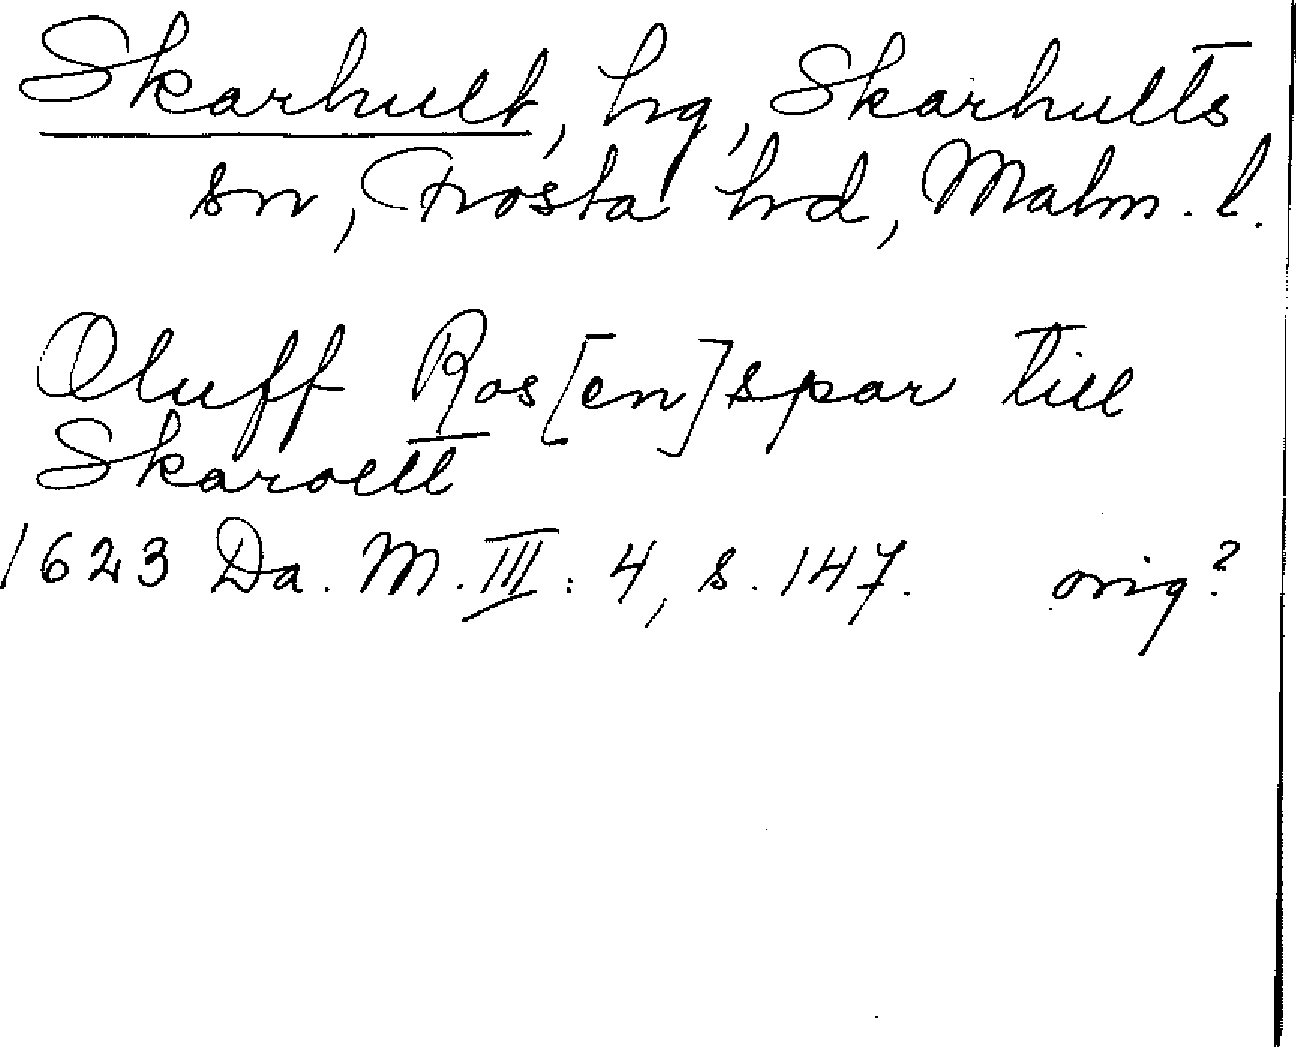 Skarhult, hg, Skarhults
sn, Frosta hd, Malm. l.
Oluff Ros[en]spar till
Skaroelt
1623 Da. M. III: 4, s. 147. orig?